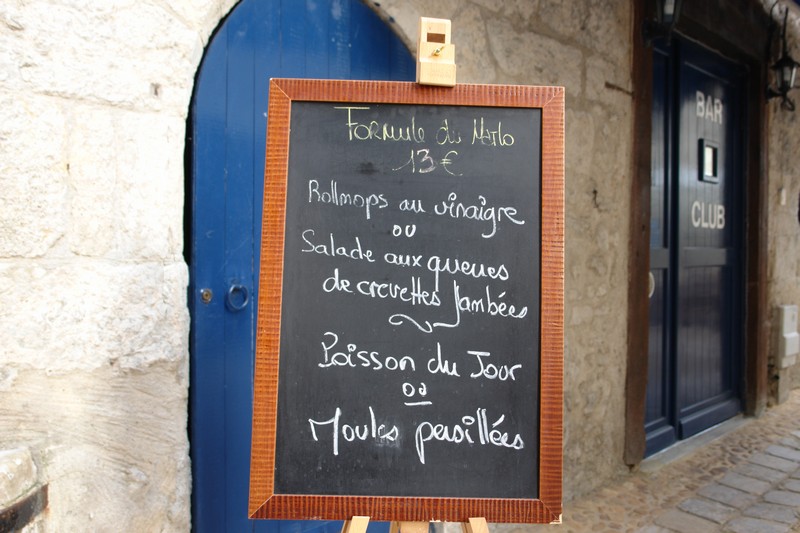 Formule du Matlo
13€
Rollmops au vinaigre
ou
Salade aux queues
de crevettes flambées
Poisson du Jour
ou
Moules persillées
BAR
CLUB